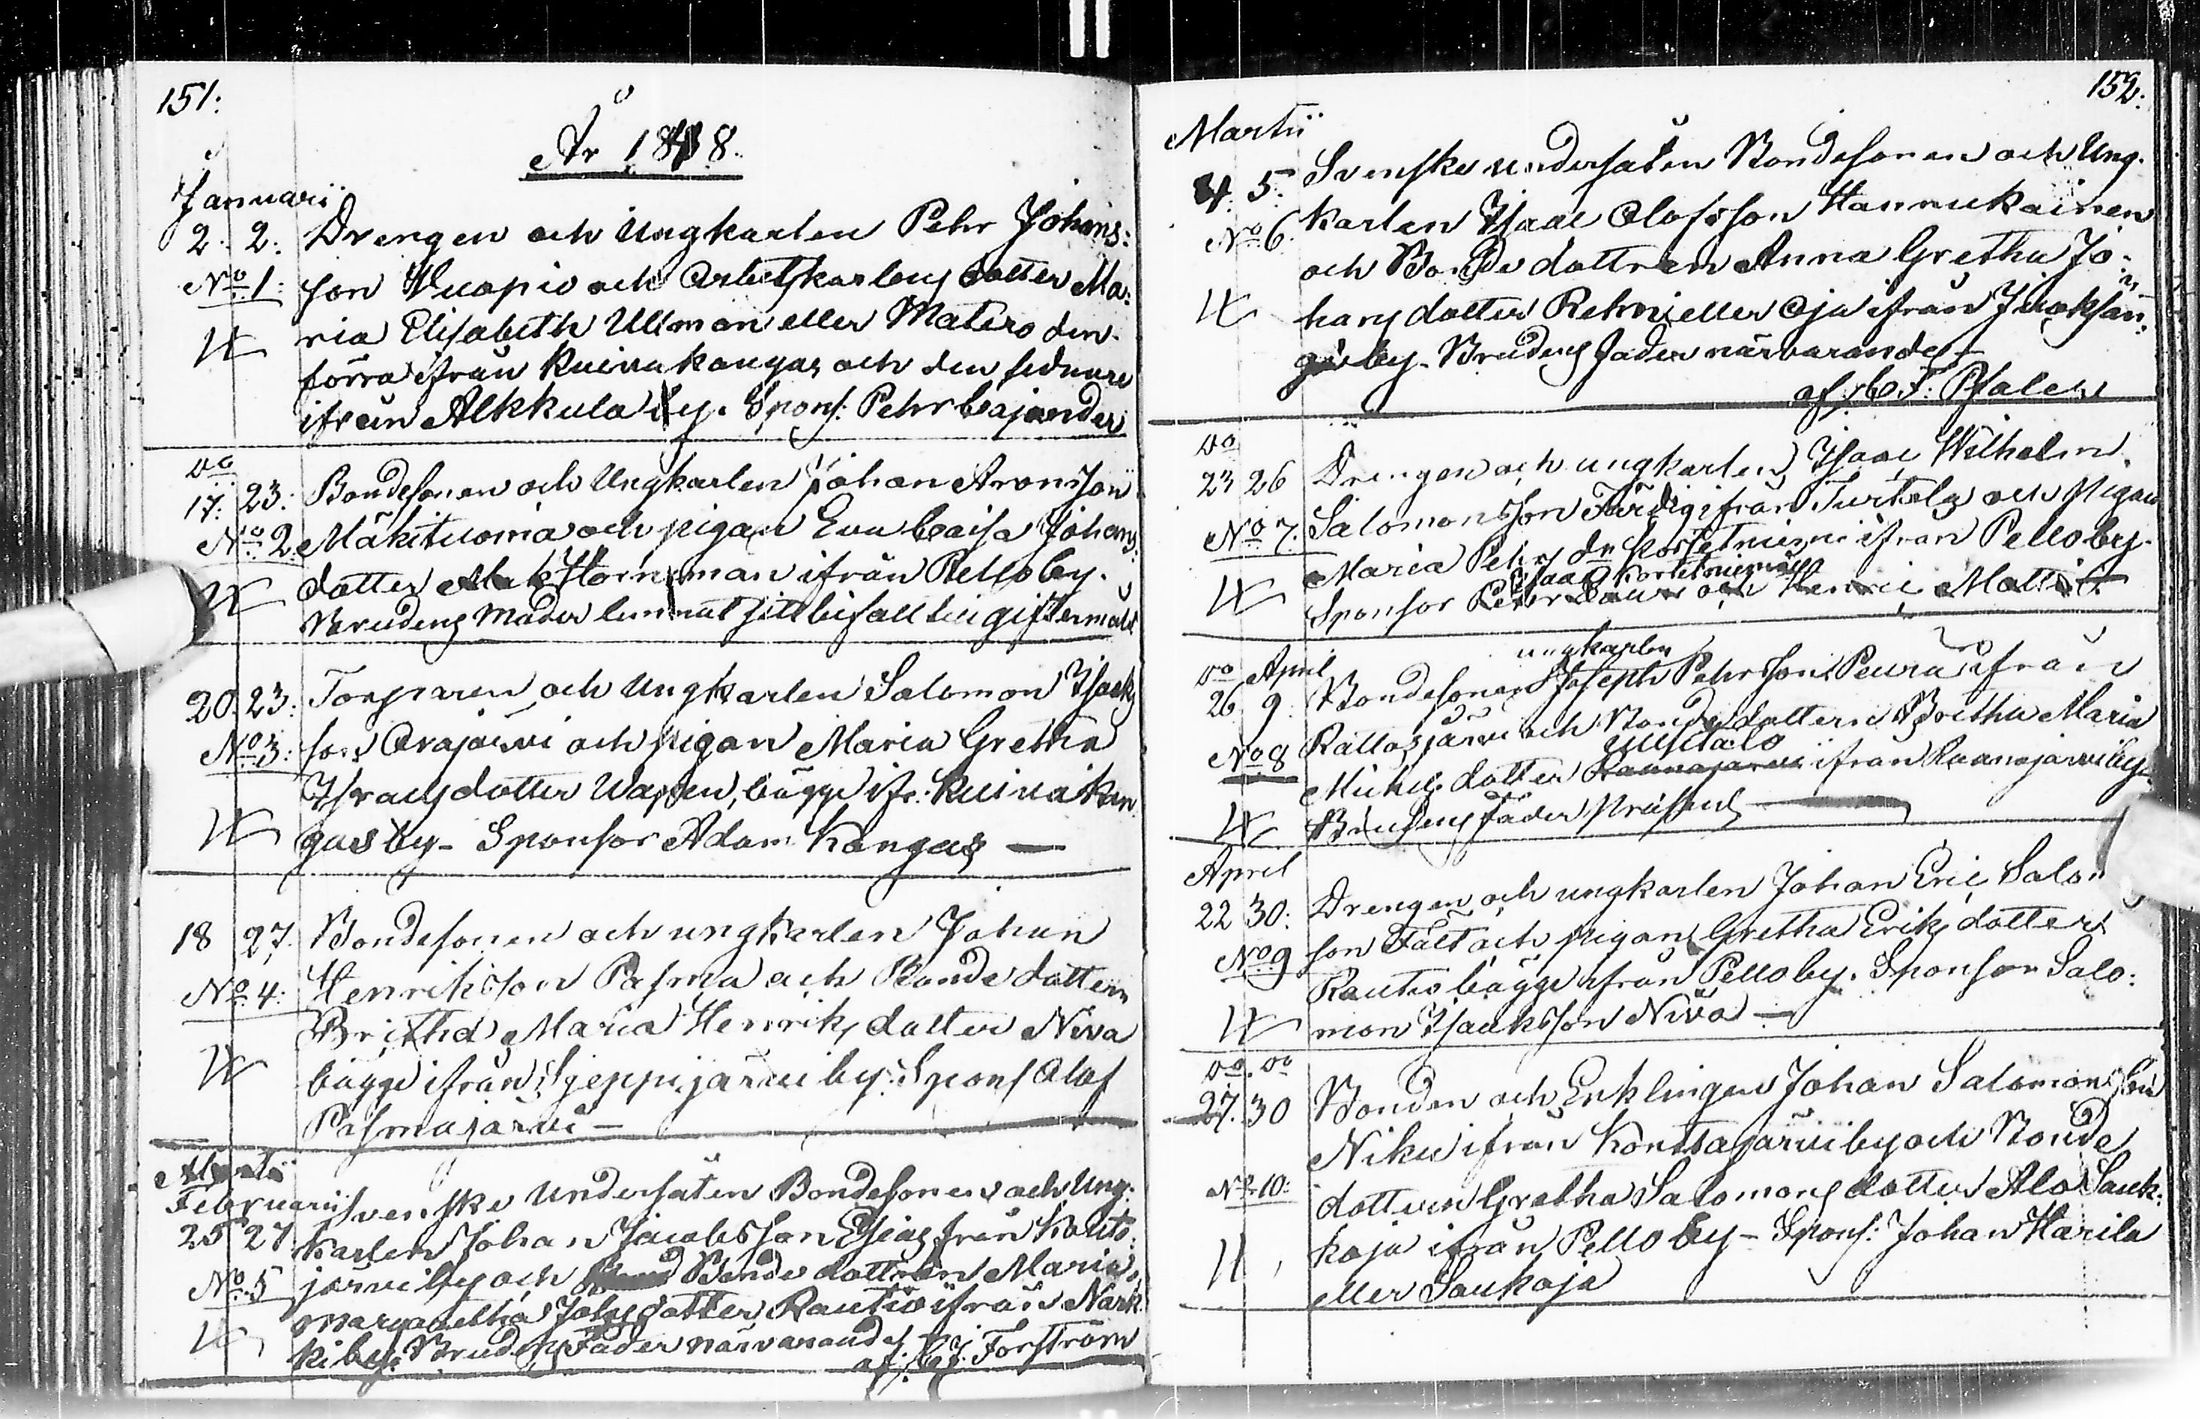 151:
År 1848.
Januarii
2. 2. Drengen och Ungkarlen Pehr Johans:
No 1: son Vuopio och Arbetskarlens dotter Ma:
ria Elisabeth Ullman eller Matero den
förra ifrån Kuivakangas och den sednare
ifrån Alkkula by. Spons: Pehr Cajander
do
17: 23: Bondesonen och Ungkarlen Johan Aronsson
No 2. Mäkituoma och pigan Eva Caisa Johans
dotter Hornman ifrån Pello by.
Brudens Moder lemnat sitt bifall till giftermålet
20. 23: Torparen och Ungkarlen Salomon Isacks
No 3: son Orajärvi och pigan Maria Gretha
Israelsdotter Wapsen, bägge ifr: Kuivakan
gas by – Sponsor Adam Kangas —
18 27. Bondesonen och ungkarlen Johan
No 4: Henriksson Pasma och Bonde dottern
Britha Maria Henriks dotter Niva
bägge ifrån Sjeppijärvi by: Spons Olof
Pasmajärvi –
Februarii Svenske Undersåten Bondesonen och Ung:
25 27 karlen Johan Jacobsson Esias från Kouto:
No 5 järvi by och Bonde dottren Maria
Margaretha Johs dotter Rautio ifrån Nark
ki by. Brudens Fader närvarande
af: C J: Forsström
152.
Martii
4. 5. Svenske undersåten Bondesonen och Ung.
No 6. karlen Isaac Olofsson Hannukainen
och Bonde dottren Anna Gretha Jo:
hans dotter Rehni eller Oja ifrån Juoksän:
gis by. Brudens fader närvarande –
do
23 26 Drengen och ungkarlen Isaac Wilhelm
No 7. Salomonsson Färdig ifrån Turtola och Pigan
Maria Pehrs dr Kortetniemi ifrån Pello by.
Isaac Kortetniemi
Sponsor
do April ungkarlen
26 9. Bondesonen Joseph Pehrsson Peura ifrån
No 8 Rattosjärvi och Bonde dottern Britha Maria
Uusitalo
Michels dotter Raanujärvi ifrån Raanujärvi by
Brudens Fader Præsens
April
22 30: Drengen och ungkarlen Johan Eric Salo
No 9 son Fält och pigan Gretha Eriks dotter
Rautio bägge ifrån Pello by. Sponsor Salo:
mon Isacksson Niva —
do. do
27. 30 Bonden och Enklingen Johan Salomonsson
Niku ifrån Konttajärvi by och Bonde
No 10: dottren Gretha Salomons dotter Alo Sauk:
koja ifrån Pello by – Spons: Johan Harila
eller Saukoja